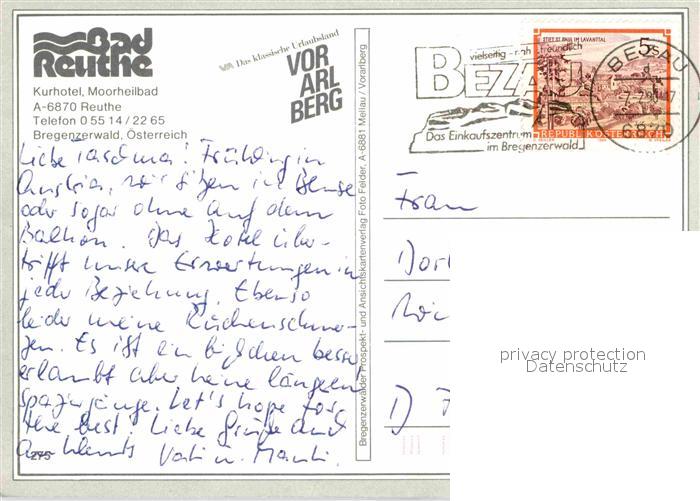 Bad
Reuthe
Kurhotel, Moorheilbad
A-6870 Reuthe
Telefon 0 55 14 / 22 65
Bregenzerwald, Österreich
Das klassische Urlaubsland
VOR
ARL
BERG
Bregenzerwälder Prospekt- und Ansichtskartenverlag Foto Felder, A-6881 Mellau / Vorarlberg
vielseitig - nah freundlich
BEZAU
Das Einkaufszentrum
im Bregenzerwald
STIFT ST. PAUL IM LAVANTTAL
5 S
REPUBLIK ÖSTERREICH
BEZAU
6870
Liebe Frühling in
Austria, wir sitzen in Bluse
oder sogar ohne auf dem
Balkon. Das Hotel über-
trifft unsere Erwartungen in
jeder Beziehung. Ebenso
leider meine Rückenschmer-
zen. Es ist ein bißchen besser
erlaubt aber keine längeren
Spaziergänge. Let's hope for
the best! Liebe Grüße and
Vati u. Mauti.
275
Frau
D
privacy protection
Datenschutz